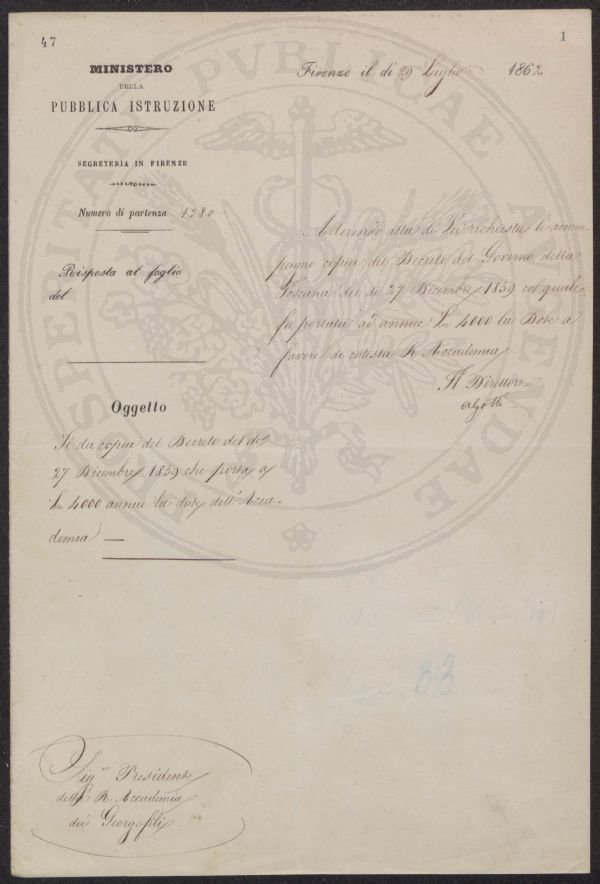 47
1
MINISTERO
DELLA
PUBBLICA ISTRUZIONE
SEGRETERIA IN FIRENZE
Numero di partenza 1280
Risposta al foglio
del
Oggetto
Si dà copia del Decreto del dì
27 Dicembre 1859 che porta a
Ln 4000 annue la dote dell'Acca-
demia
Firenze il dì 29 Luglio 1862
Aderendo alla di Lei richiesta le accom-
pagno copia del Decreto del Governo della
Toscana del dì 27 Dicembre 1859 col quale
fu portata ad annue Ln 4000 la Dote a
favore di cotesta R. Accademia
Il Direttore
Sig.re Presidente
della R. Accademia
dei Georgofili
PROSPERITATI PVBLICAE AVGENDAE